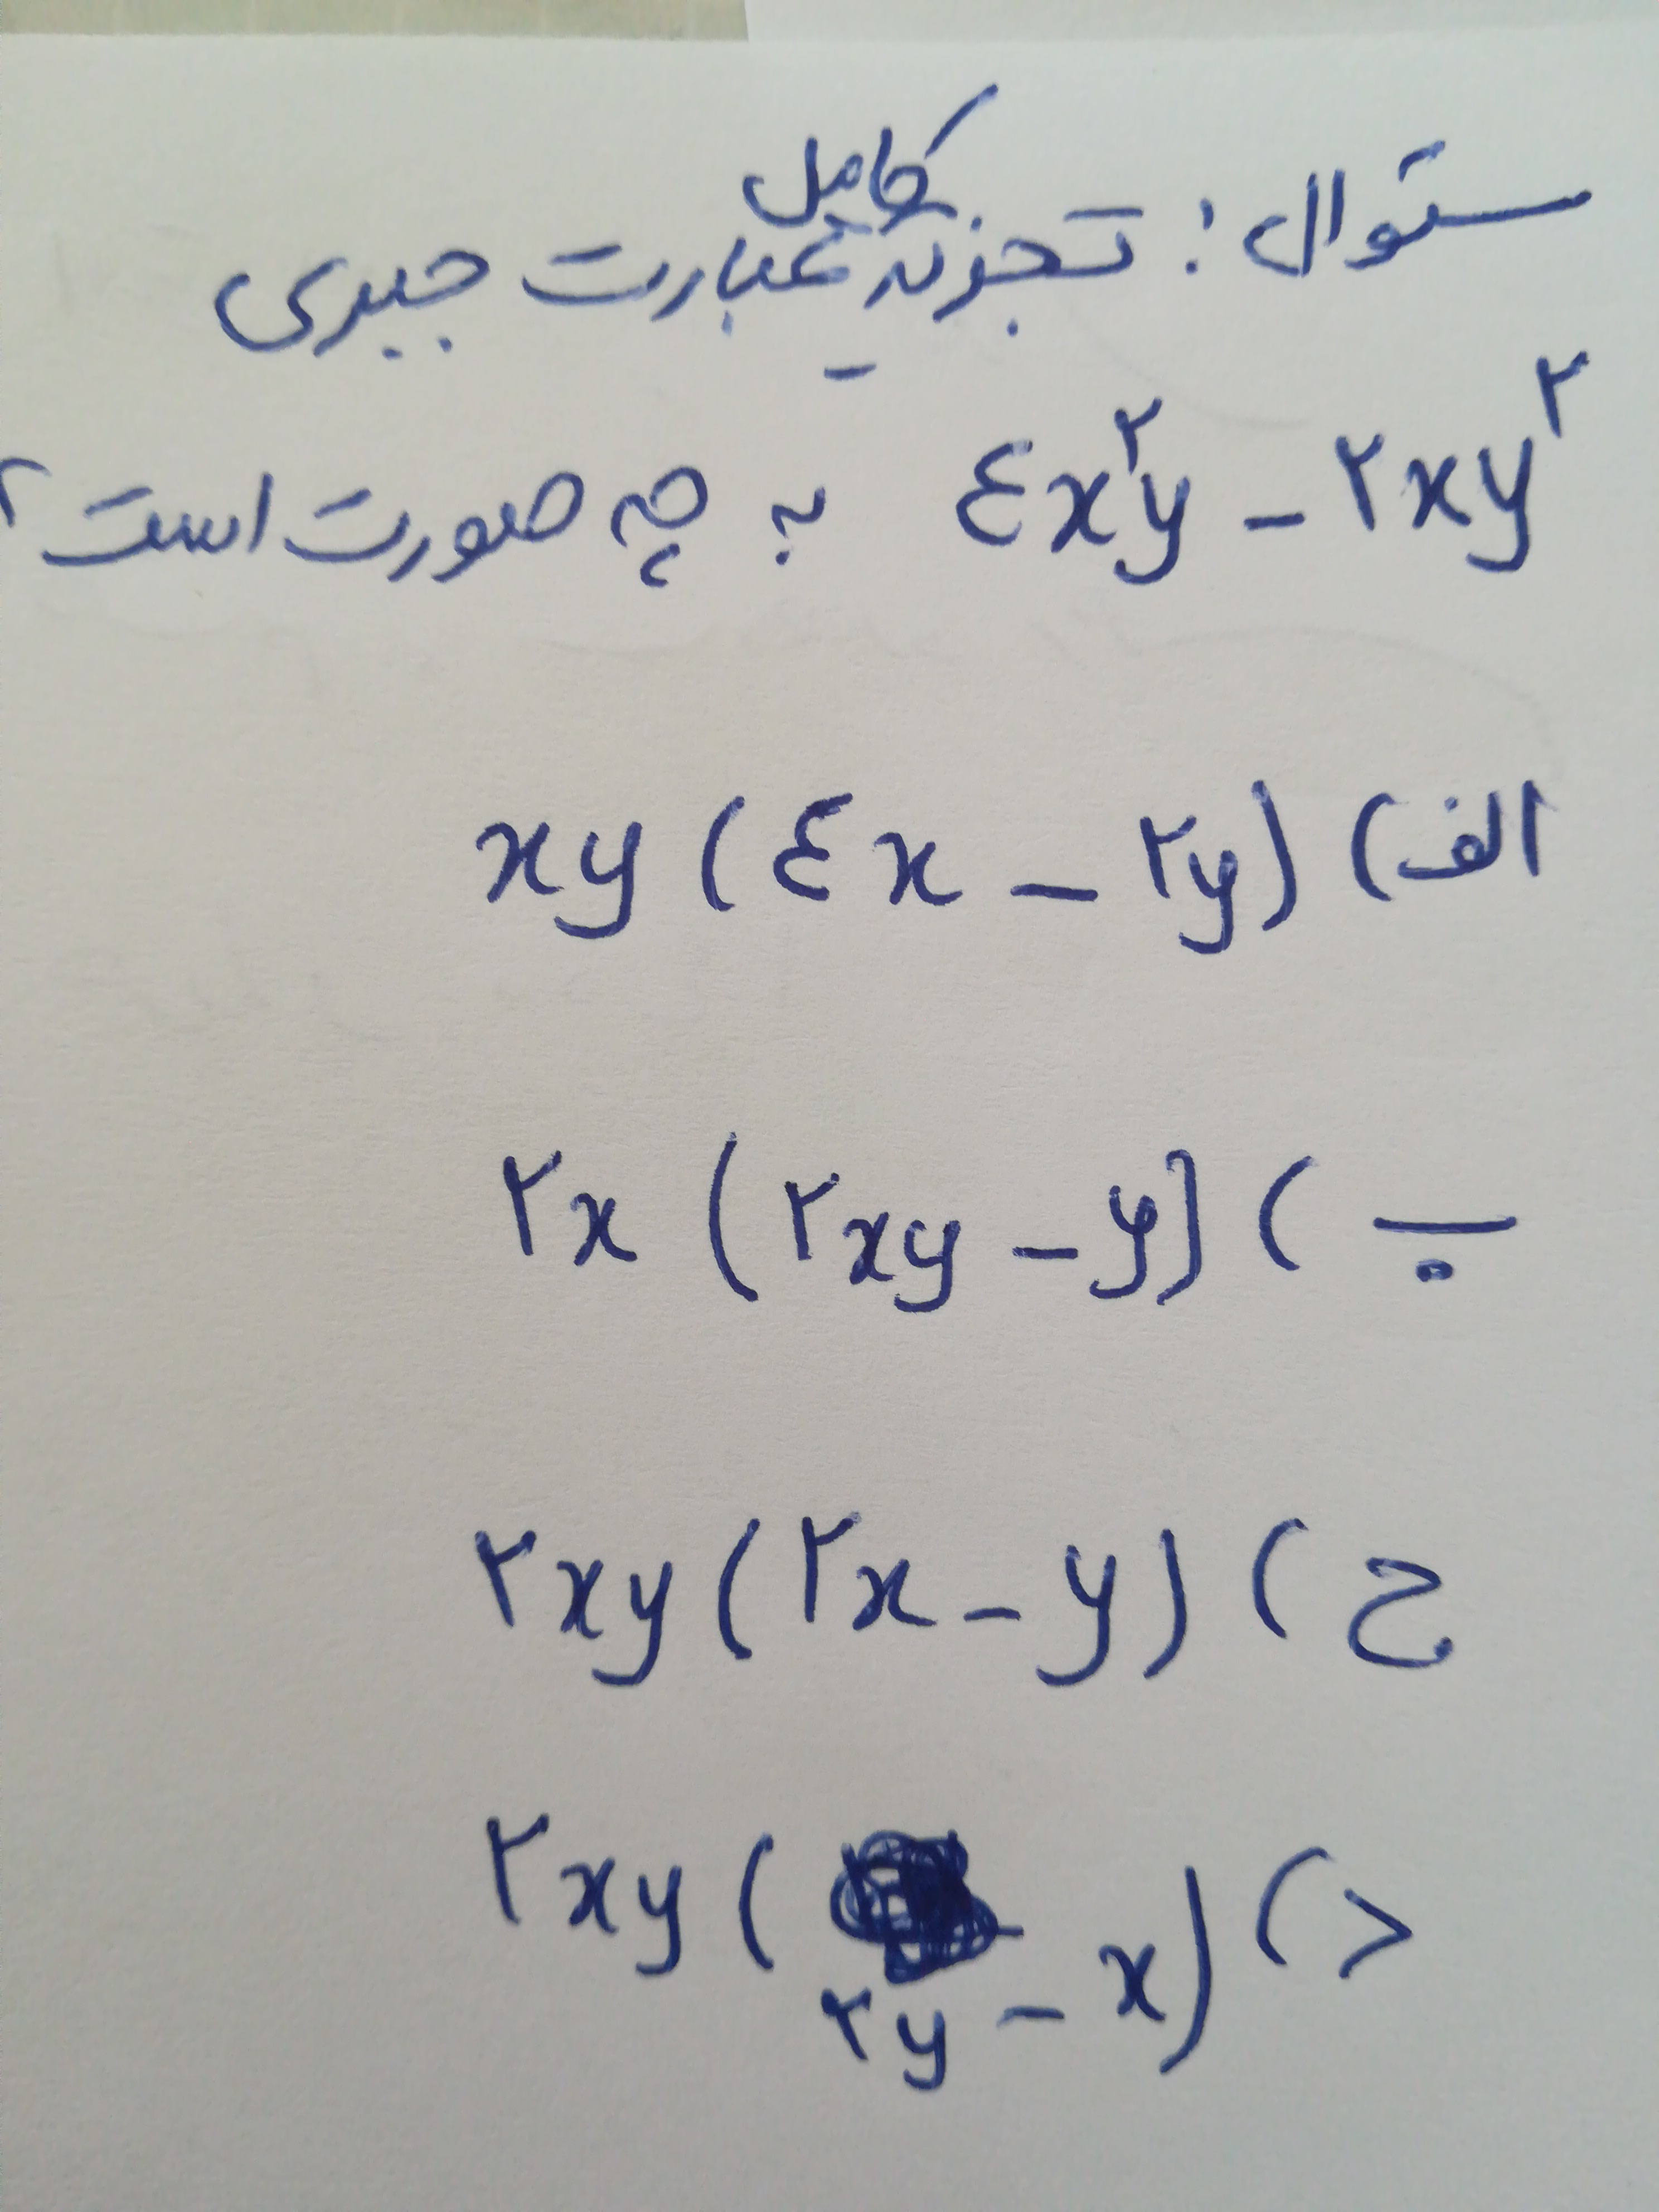 سئوال: تجزیه کامل عبارت جبری
٤x²y - ۲xy² به چه صورت است؟
الف) xy (٤x - ۲y)
ب) ۲x (۲xy - y)
ج) ۲xy (۲x - y)
د) ۲xy (۲y - x)